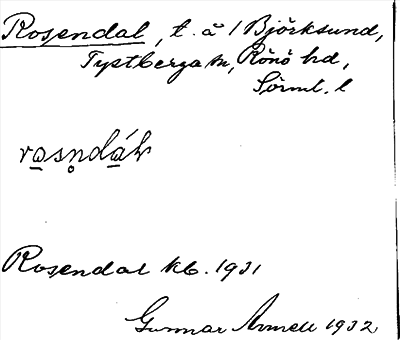 Rosendal, t. å 1 Björksund,
Tystberga sn, Rönö hd,
Sörml. l
Rosendal kb. 1931
Gunnar Armell 1932